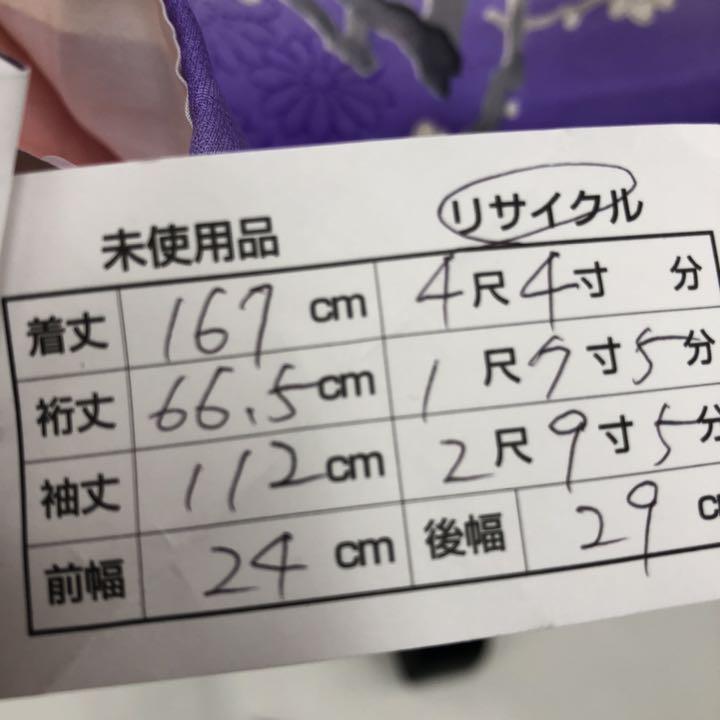 未使用品 リサイクル
着丈 167 cm 4尺4寸 分
裄丈 66.5cm 1尺7寸5分
袖丈 112cm 2尺9寸5分
前幅 24 cm 後幅 29 c